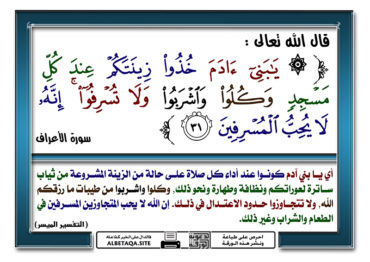 قال الله تعالى :
﴿ ۞ يَٰبَنِىٓ ءَادَمَ خُذُوا۟ زِينَتَكُمْ عِندَ كُلِّ
مَسْجِدٍ وَكُلُوا۟ وَٱشْرَبُوا۟ وَلَا تُسْرِفُوٓا۟ ۚ إِنَّهُۥ
لَا يُحِبُّ ٱلْمُسْرِفِينَ ٣١ ﴾
سورة الأعراف
أي يـا بني آدم كونـوا عند أداء كل صلاة علـى حالة من الزينة المشـروعة من ثياب
سـاترة لعوراتكم ونظافة وطهارة ونحو ذلك، وكلوا واشـربوا من طيبات ما رزقكم
الله، ولا تتجـاوزوا حـدود الاعتـدال في ذلـك. إن الله لا يحب المتجاوزين المسـرفين في
الطعام والشراب وغير ذلك.
( التفسير الميسر)
ALBETAQA.SITE
احرص على طباعة
ونشر هذه الورقة